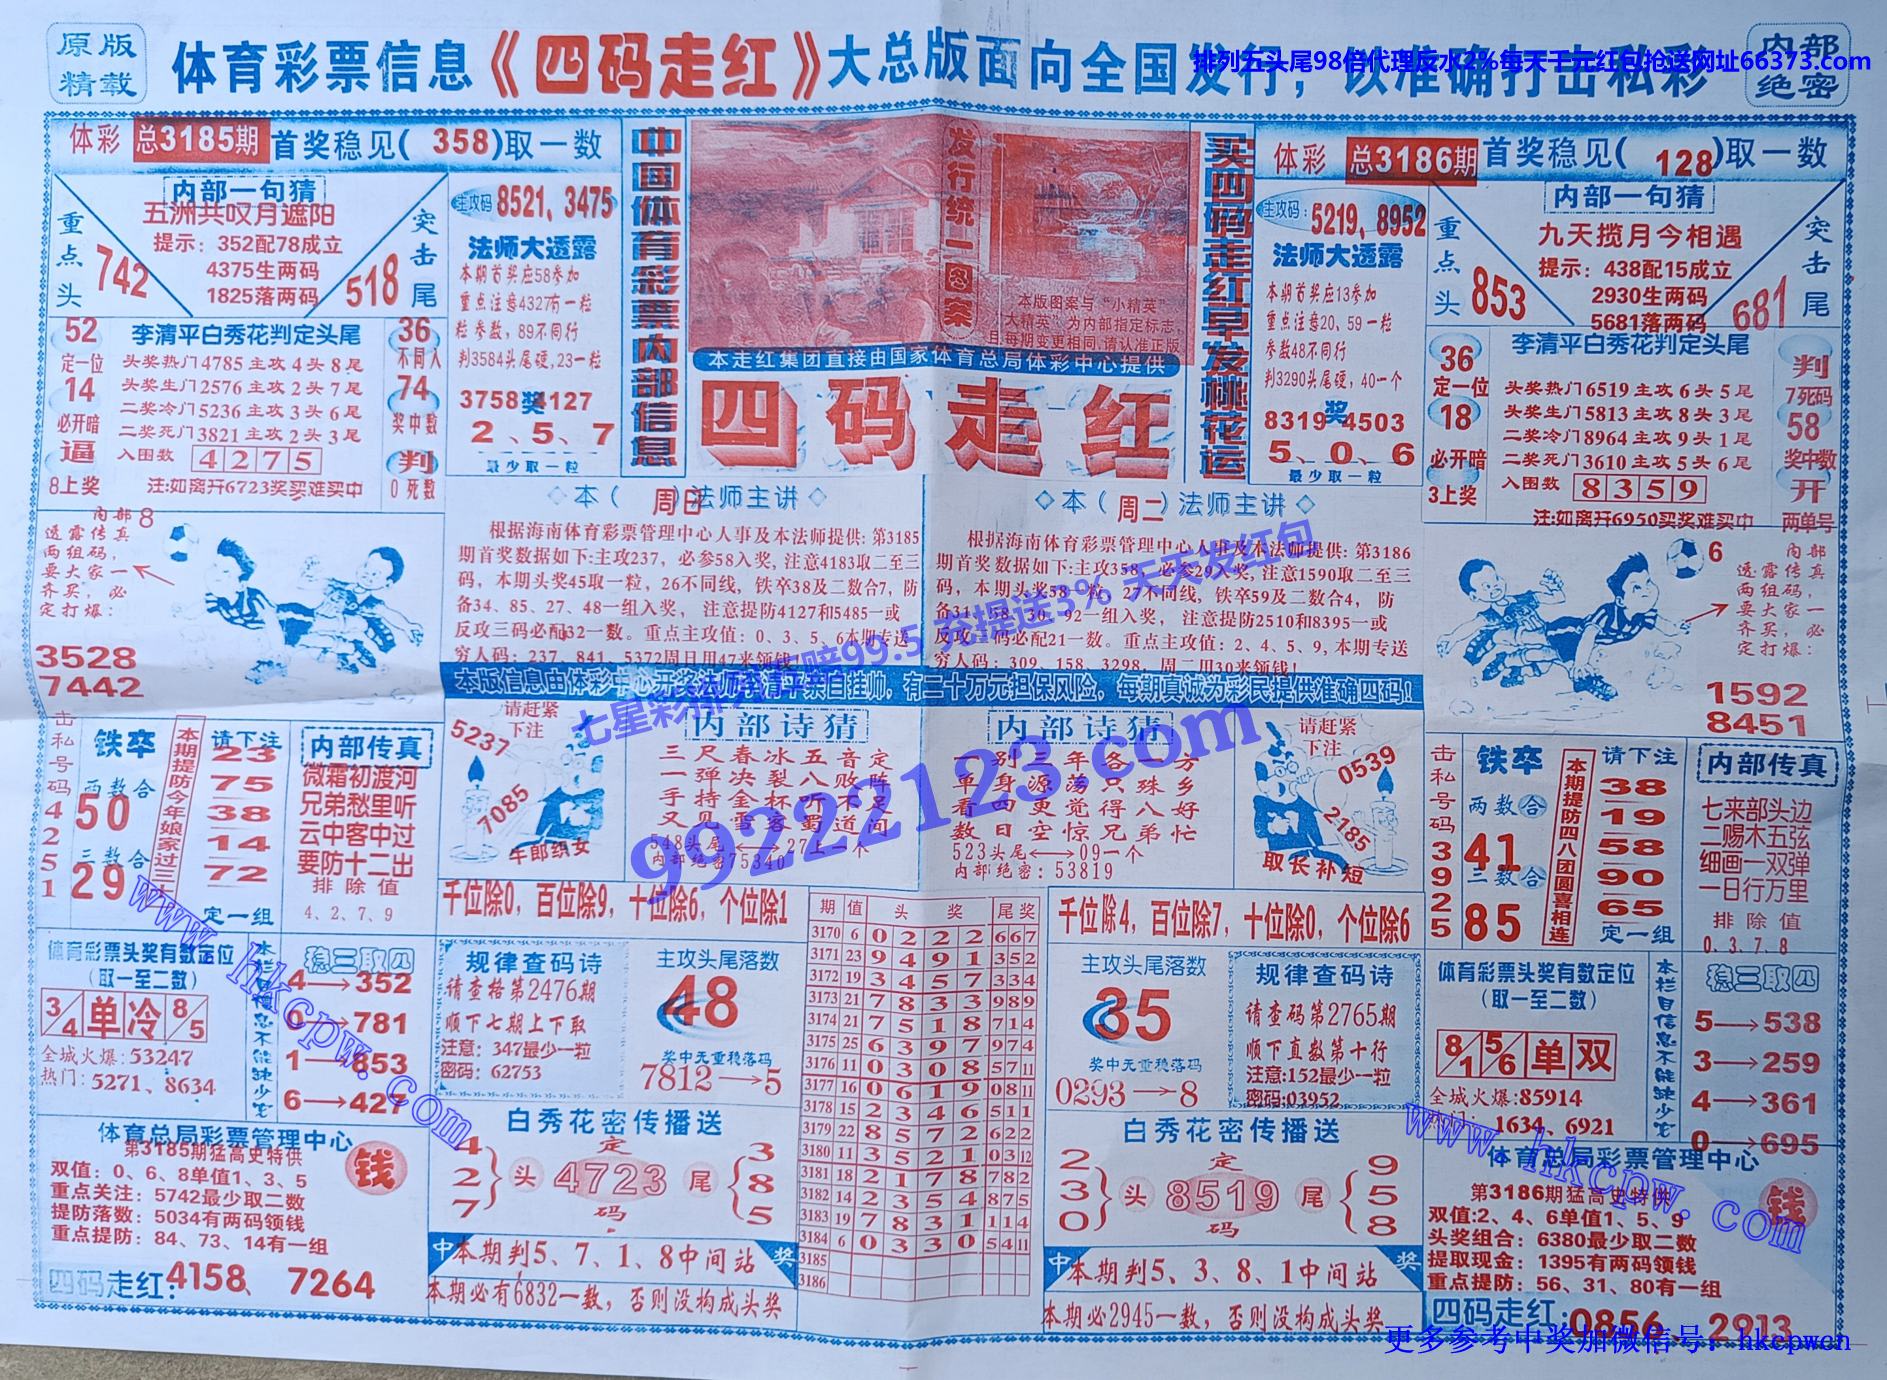 原版
精载
体育彩票信息《四码走红》大总版面向全国发行，以准确打击私彩
内部
绝密
排列五头尾98倍代理反水2%每天千元红包抢送网址66373.com
体彩 总3185期 首奖稳见(358)取一数
内部一句猜
五洲共叹月遮阳
提示：352配78成立
4375生两码
1825落两码
重点头
742
突击尾
518
主攻码 8521、3475
法师大透露
本期首奖应58参加
重点注意4327有一粒
粒参数，89不同行
判3584头尾硬，23一粒
3758奖4127
2、5、7
最少取一粒
52
定一位
14
必开暗
逼
8上奖
李清平白秀花判定头尾
头奖热门4785主攻4头8尾
头奖生门2576主攻2头7尾
二奖冷门5236主攻3头6尾
二奖死门3821主攻2头3尾
入围数 4275
注:如离开6723奖买难买中
36
不同人
74
奖中数
判
0死数
中国体育彩票内部信息
发行统一图案
本版图案与“小精英”
大精英”为内部指定标志，
且每期变更相同，请认准正版
本走红集团直接由国家体育总局体彩中心提供
四码走红
买四码走红早发桃花运
体彩 总3186期 首奖稳见(128)取一数
主攻码：5219、8952
法师大透露
本期首奖应13参加
重点注意20、59一粒
参数48不同行
判3290头尾硬，40一个
8319奖4503
5、0、6
最少取一粒
内部一句猜
九天揽月今相遇
提示：438配15成立
2930生两码
5681落两码
重点头
853
突击尾
681
36
定一位
18
必开暗
3上奖
李清平白秀花判定头尾
头奖热门6519主攻6头5尾
头奖生门5813主攻8头3尾
二奖冷门8964主攻9头1尾
二奖死门3610主攻5头6尾
入围数 8359
注:如离开6950买奖难买中
判
7死码
58
奖中数
开
两单号
内部8
透露传真
两组码，
要大家一
齐买，必
定打爆：
3528
7442
◇本(周日)法师主讲◇
根据海南体育彩票管理中心人事及本法师提供：第3185
期首奖数据如下:主攻237，必参58入奖，注意4183取二至三
码，本期头奖45取一粒，26不同线，铁卒38及二数合7，防
备34、85、27、48一组入奖，注意提防4127和5485一或
反攻三码必配32一数。重点主攻值：0、3、5、6本期专送
穷人码：237、841、5372周日用47来领钱
◇本(周二)法师主讲◇
根据海南体育彩票管理中心人事及本法师提供：第3186
期首奖数据如下:主攻358，必参29入奖，注意1590取二至三
码，本期头奖58一粒，27不同线，铁卒59及二数合4，防
备31、58、30、92一组入奖，注意提防2510和8395一或
反攻 码必配21一数。重点主攻值：2、4、5、9，本期专送
穷人码：309、158、3298，周二用30来领钱！
6
内部
透露传真
两组码，
要大家一
齐买，必
定打爆：
1592
8451
本版信息由体彩中心开奖法师李清平亲自挂帅，有二十万元担保风险，每期真诚为彩民提供准确四码！
七星彩排列五赔99.5 充提送3% 天天发红包
99222123.com
击私号码4251
铁卒
两数合
50
三数合
29
本期提防今年娘家过三十
请下注
23
75
38
14
72
定一组
内部传真
微霜初渡河
兄弟愁里听
云中客中过
要防十二出
排除值
4、2、7、9
请赶紧
下注
5237
7085
牛郎织女
内部诗猜
三尺春冰五音定
一弹决裂八败阵
手持金杯听不足
又见雪客蜀道问
548头尾⟷27上一个
内部绝密75340
内部诗猜
一别三年各一方
单身源荡只殊乡
看四更觉得八好
数日空惊兄弟忙
523头尾⟷09一个
内部绝密：53819
请赶紧
下注
0539
2185
取长补短
击私号码3925
铁卒
两数合
41
三数合
85
本期提防四八团圆喜相连
请下注
38
19
58
90
65
定一组
内部传真
七来部头边
二赐木五弦
细画一双弹
一日行万里
排除值
0、3、7、8
千位除0，百位除9，十位除6，个位除1
千位除4，百位除7，十位除0，个位除6
体育彩票头奖有数定位
(取一至二数)
3/4 单 冷 8/5
全城火爆:53247
热门：5271、8634
本栏目信息不能缺少它
稳三取四
4→352
0→781
1→853
6→427
规律查码诗
请查格第2476期
顺下七期上下取
注意：347最少一粒
密码：62753
主攻头尾落数
48
奖中无重稳落码
7812→5
期 值 头奖 尾奖
3170 6 0 2 2 2 6 6 7
3171 23 9 4 9 1 3 5 2
3172 19 3 4 5 7 3 3 4
3173 21 7 8 3 3 9 8 9
3174 21 7 5 1 8 7 1 4
3175 25 6 3 9 7 9 7 4
3176 11 0 3 0 8 5 7 11
3177 16 0 6 1 9 0 8 11
3178 15 2 3 4 6 5 1 1
3179 22 8 5 7 2 6 2 2
3180 11 3 5 2 1 0 3 12
3181 18 2 1 7 8 7 8 2
3182 14 2 3 5 4 8 7 5
3183 19 7 8 3 1 1 1 4
3184 6 0 3 3 0 5 4 11
3185
3186
主攻头尾落数
35
奖中无重稳落码
0293→8
规律查码诗
请查码第2765期
顺下直数第十行
注意:152最少一粒
密码:03952
体育彩票头奖有数定位
(取一至二数)
8/1 5/6 单 双
全城火爆:85914
热门： 1634、6921
本栏目信息不能缺少它
稳三取四
5→538
3→259
4→361
0→695
体育总局彩票管理中心
第3185期猛高史特供
双值：0、6、8单值1、3、5
重点关注：5742最少取二数
提防落数：5034有两码领钱
重点提防：84、73、14有一组
钱
四码走红:4158、7264
白秀花密传播送
4
2
7
头
定
4723
码
尾
3
8
5
中 本期判5、7、1、8中间站 奖
本期必有6832一数，否则没构成头奖
白秀花密传播送
2
3
0
头
定
8519
码
尾
9
5
8
中 本期判5、3、8、1中间站 奖
本期必2945一数，否则没构成头奖
体育总局彩票管理中心
第3186期猛高史特供
双值:2、4、6单值1、5、9
头奖组合：6380最少取二数
提取现金：1395有两码领钱
重点提防：56、31、80有一组
钱
四码走红:0856、2913
www.hkcpw.com
www.hkcpw.com
更多参考中奖加微信号：hkcpwcn